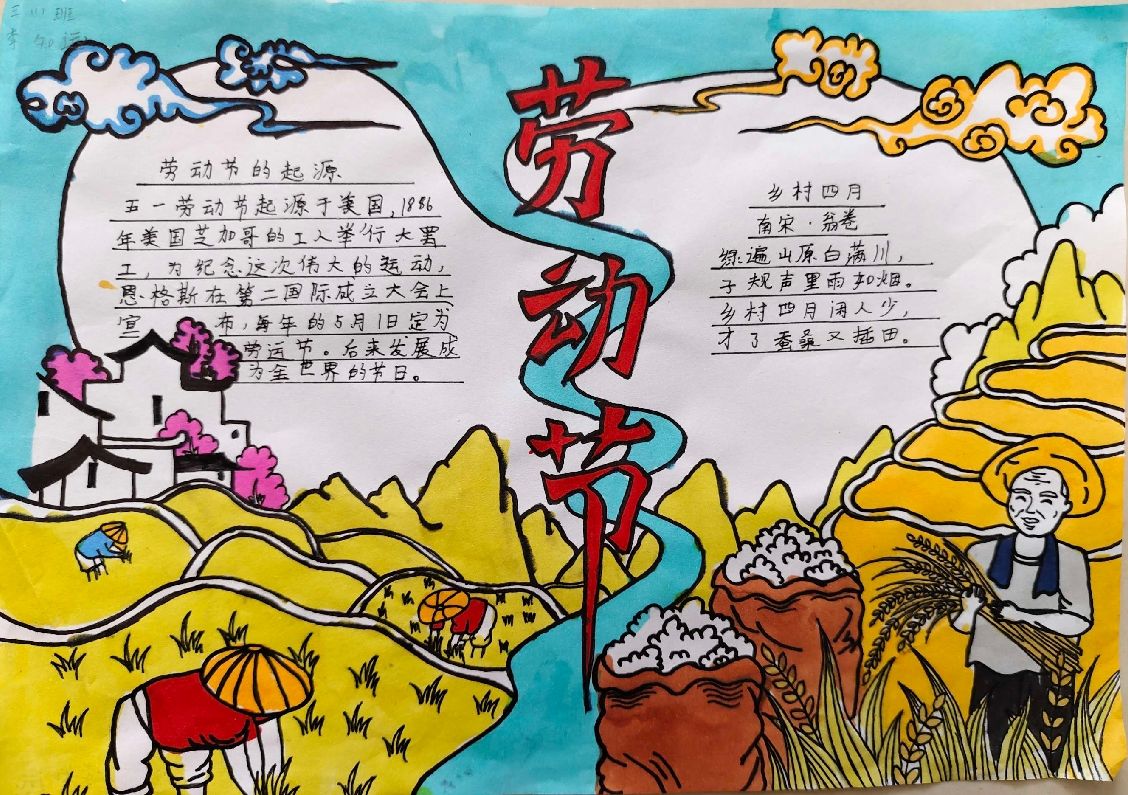 三(1)班
李知远
劳动节
劳动节的起源
五一劳动节起源于美国,1886
年美国芝加哥的工人举行大罢
工,为纪念这次伟大的运动,
恩格斯在第二国际成立大会上
宣布,每年的5月1日定为
劳运节。后来发展成
为全世界的节日。
乡村四月
南宋·翁卷
绿遍山原白满川,
子规声里雨如烟。
乡村四月闲人少,
才了蚕桑又插田。